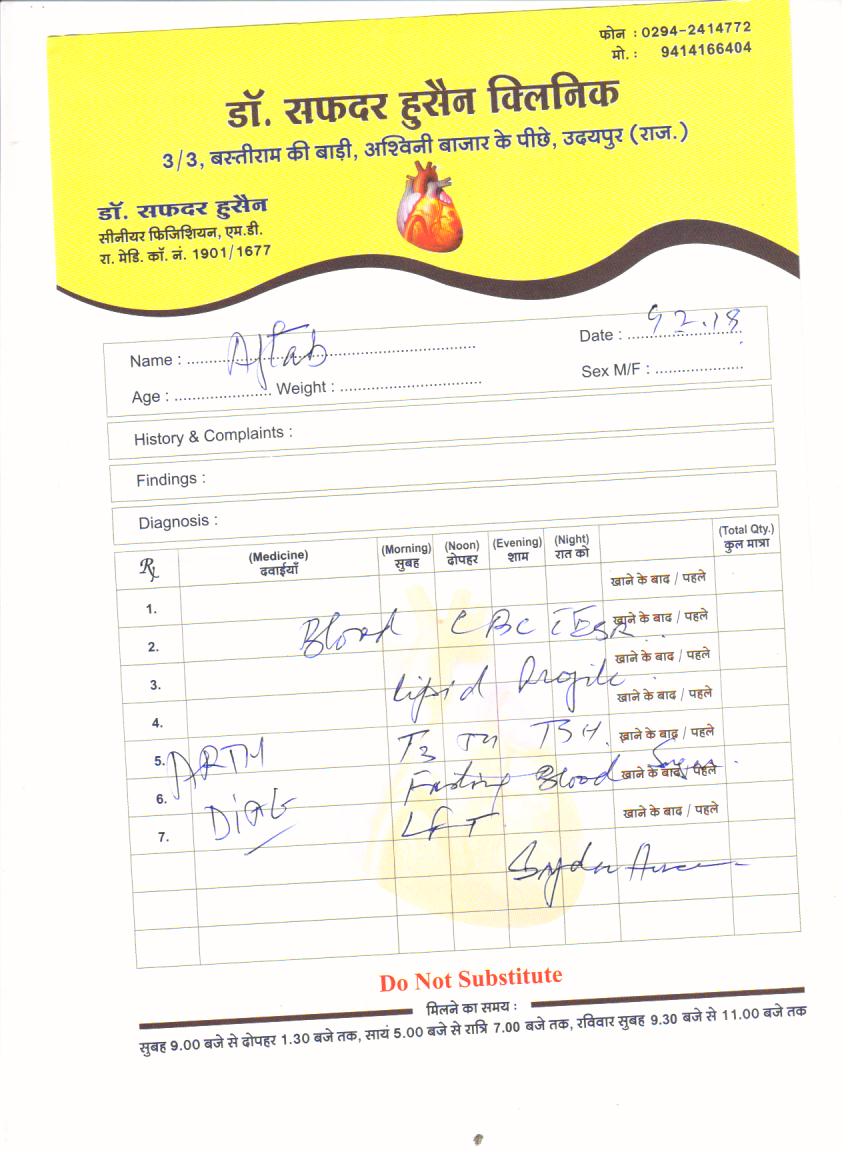 फोन : 0294-2414772
मो. : 9414166404
डॉ. सफदर हुसैन क्लिनिक
3/3, बस्तीराम की बाड़ी, अश्विनी बाजार के पीछे, उदयपुर (राज.)
डॉ. सफदर हुसैन
सीनीयर फिजिशियन, एम.डी.
रा. मेडि. कॉ. नं. 1901/1677
Name : Aftab Date : 9 2.18
Age : Weight : Sex M/F :
History & Complaints :
Findings :
Diagnosis :
Rx (Medicine) (Morning) (Noon) (Evening) (Night) (Total Qty.)
दवाईयाँ सुबह दोपहर शाम रात को कुल मात्रा
1. खाने के बाद / पहले
2. Blood CBC ESR खाने के बाद / पहले
3. Lipid Profile खाने के बाद / पहले
4. खाने के बाद / पहले
5. ARTH T3 T4 TSH. खाने के बाद / पहले
6. DIAG Fasting Blood Sugar खाने के बाद / पहले
7. LFT खाने के बाद / पहले
Do Not Substitute
मिलने का समय :
सुबह 9.00 बजे से दोपहर 1.30 बजे तक, सायं 5.00 बजे से रात्रि 7.00 बजे तक, रविवार सुबह 9.30 बजे से 11.00 बजे तक